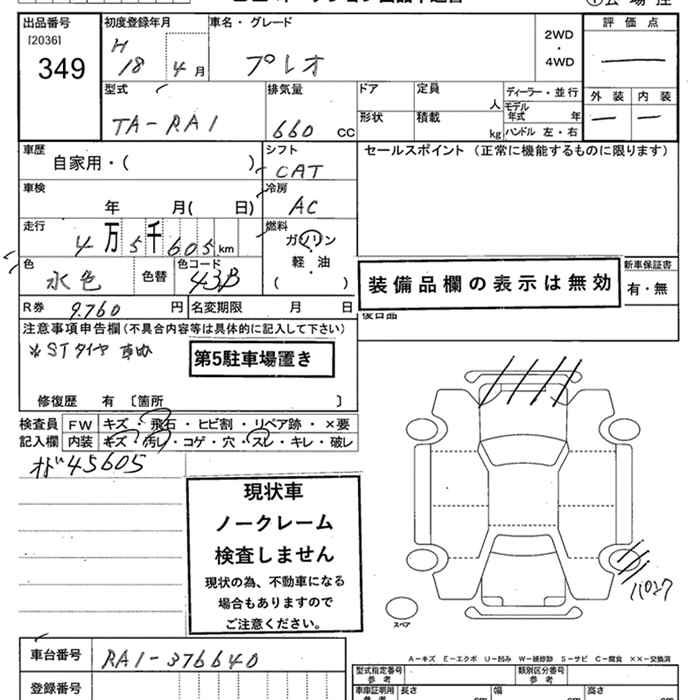 出品番号
[2036]
349
初度登録年月
H
18 4 月
車名・グレード
プレオ
2WD
・
4WD
評価点
外装 内装
型式
TA-RA1
排気量
660 CC
ドア
定員
人
形状
積載
kg
ディーラー・並行
モデル
年式 年
ハンドル 左・右
車歴
自家用・( )
シフト
CAT
セールスポイント (正常に機能するものに限ります)
車検
年 月( 日)
冷房
AC
走行
4 万 5 千 605 km
燃料
ガソリン
軽・油
( )
色
水色
色替
色コード
43B
装備品欄の表示は無効
新車保証書
有・無
R券
9,760 円
名変期限 月 日
注意事項申告欄(不具合内容等は具体的に記入して下さい)
※STタイヤ
第5駐車場置き
修復歴 有 〔箇所 〕
検査員 FW キズ・飛石・ヒビ割・リペア跡・×要
記入欄 内装 キズ・汚レ・コゲ・穴・スレ・キレ・破レ
オド45605
現状車
ノークレーム
検査しません
現状の為、不動車になる
場合もありますので
ご注意ください。
パンク
スペア
A-キズ E-エクボ U-凹み W-補修跡 S-サビ C-腐食 ××-交換済
車台番号
RA1-376640
型式指定番号
参考
類別区分番号
参考
登録番号
車庫証明用
参考
長さ cm
幅 cm
高さ cm